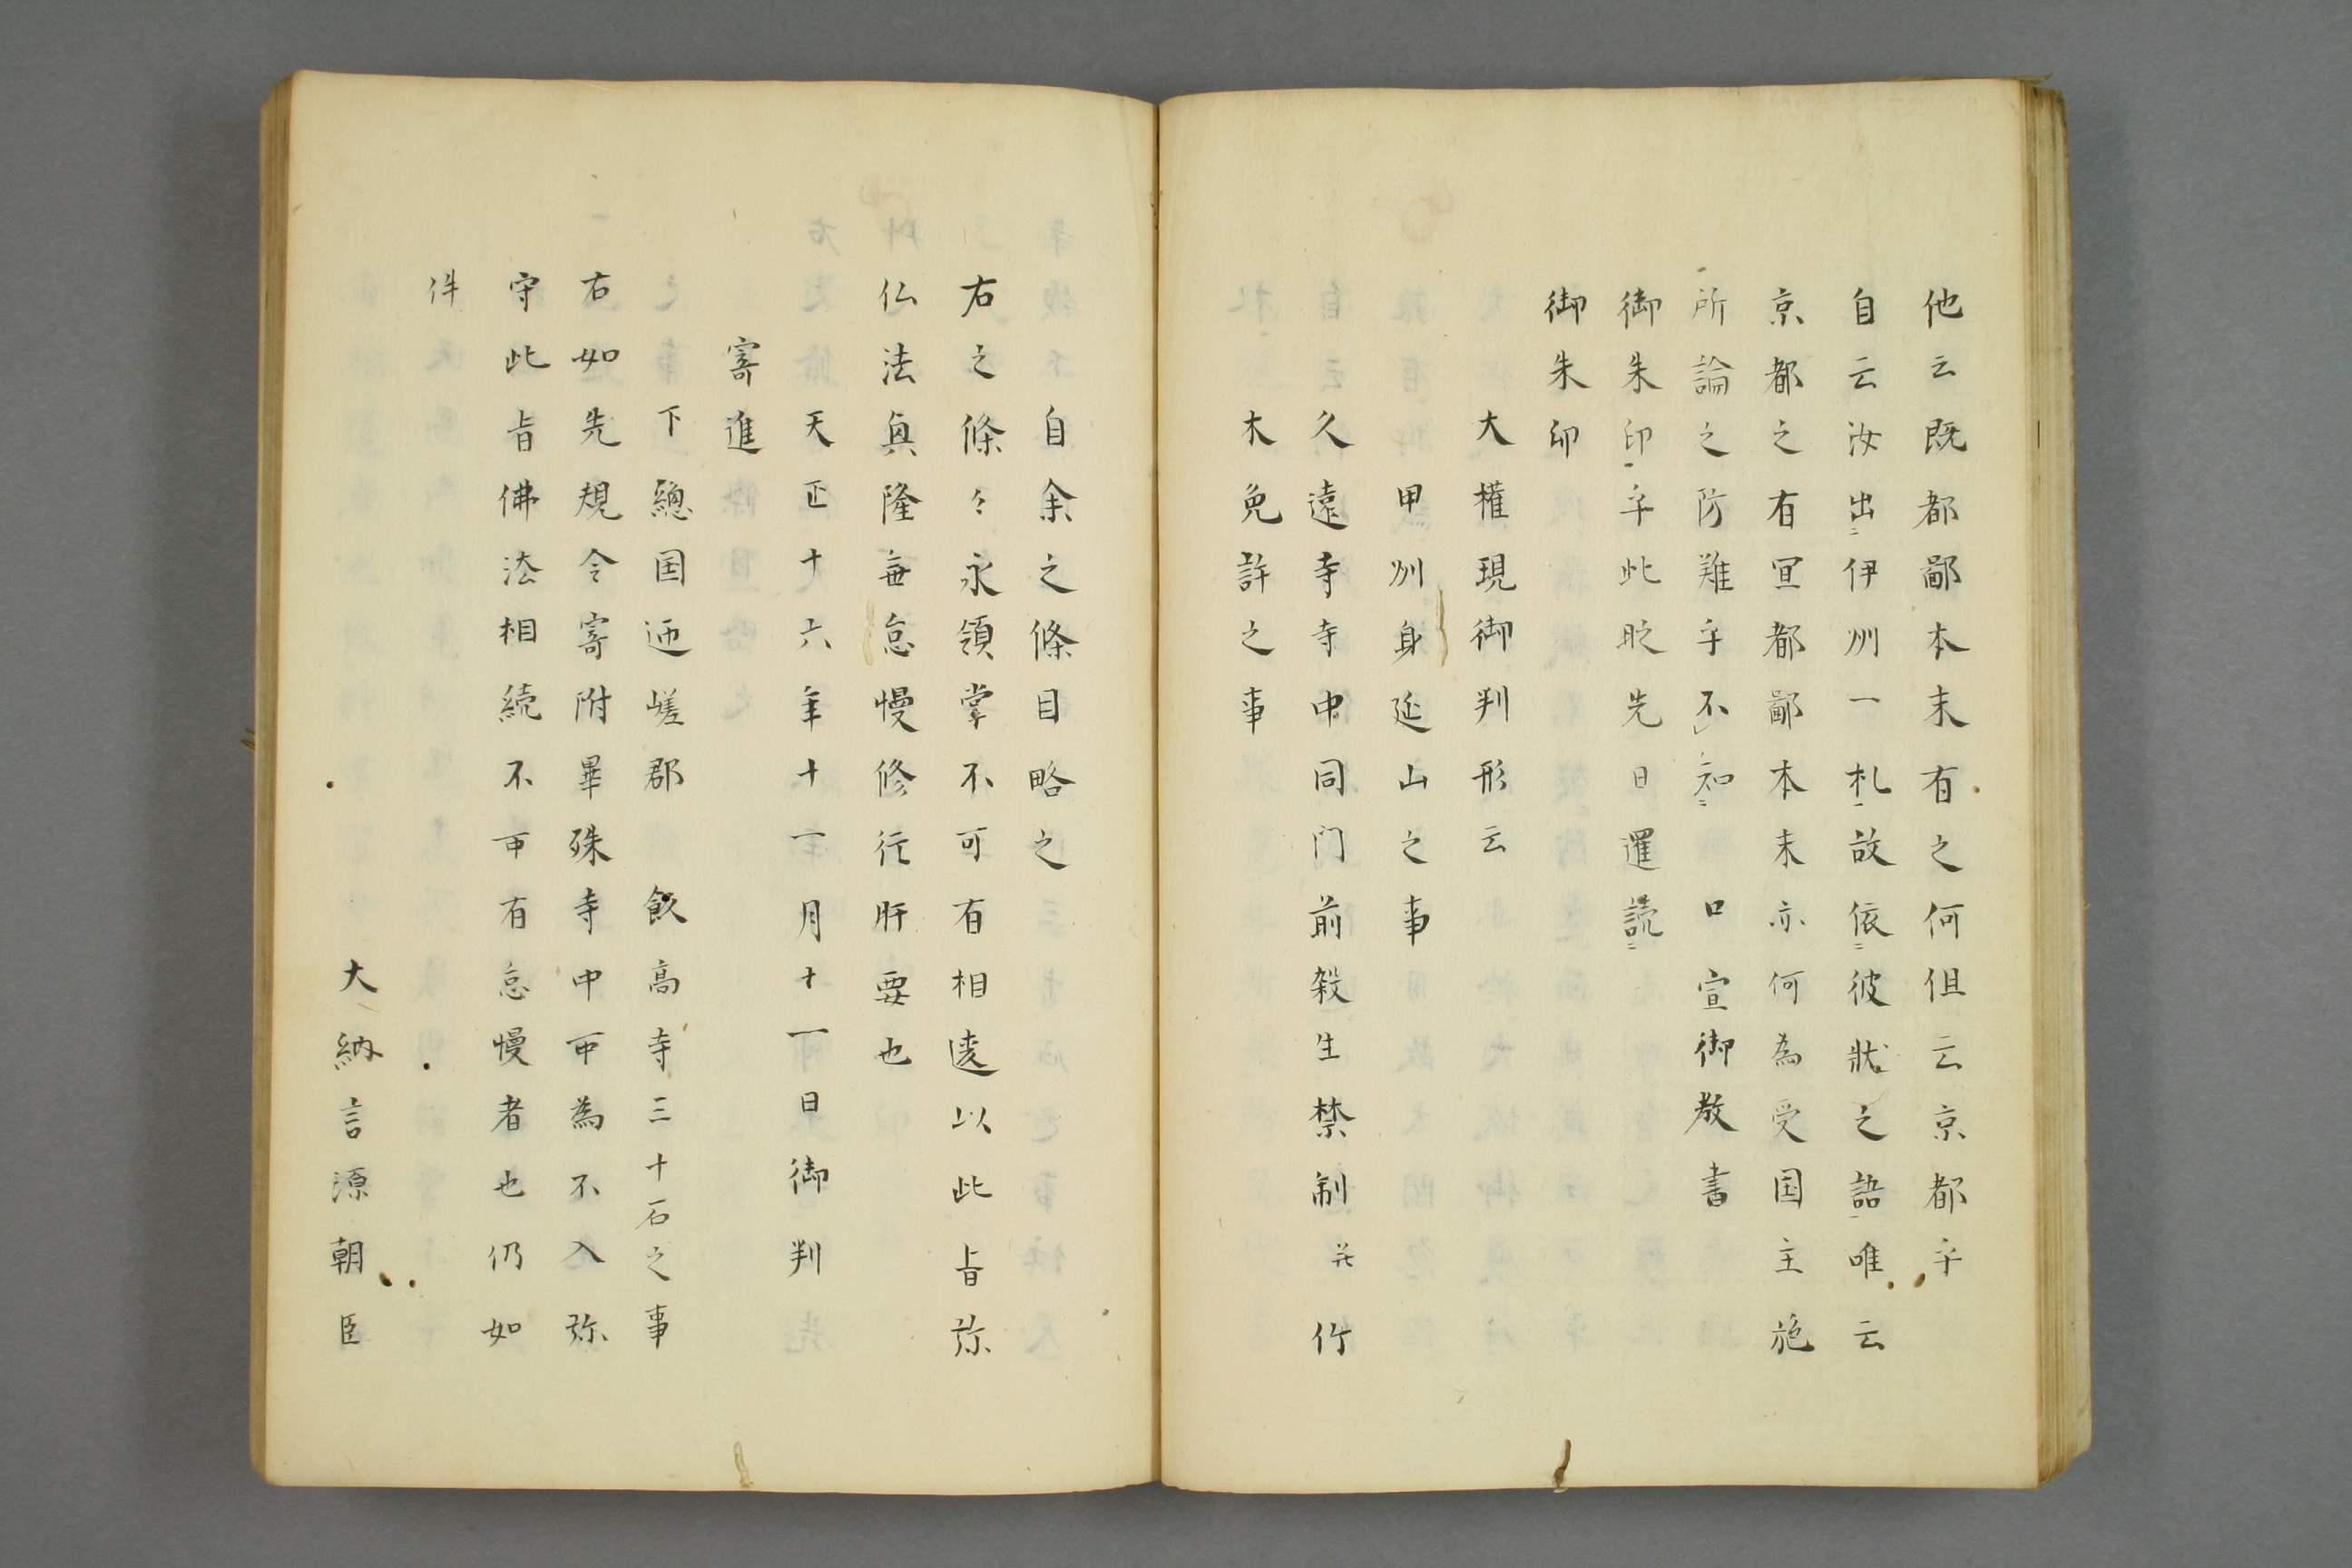 他云既都鄙本末有之何但云京都乎
自云汝出ニ伊州一札一故依ニ彼狀之語一唯云
京都之有冝都鄙本末亦何為受国主施
所論之防難乎不レ知ニ 口宣御教書
御朱印一乎此砭先日邏読ニ
御朱印
大權現御判形云
甲州身延山之事
久遠寺寺中同门前殺生禁制并竹
木免許之事
自余之條目略之
右之條々永領掌不可有相違以此旨弥
仏法興隆無怠慢修行肝要也
天正十六年十一月十一日御判
寄進
下總国迊嵯郡 飯高寺三十石之事
右如先規令寄附畢殊寺中可為不入弥
守此旨佛法相続不可有怠慢者也仍如
件
大納言源朝臣